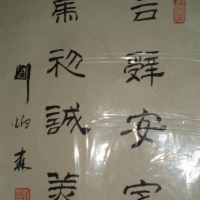 言辭安定
篤初誠美
森